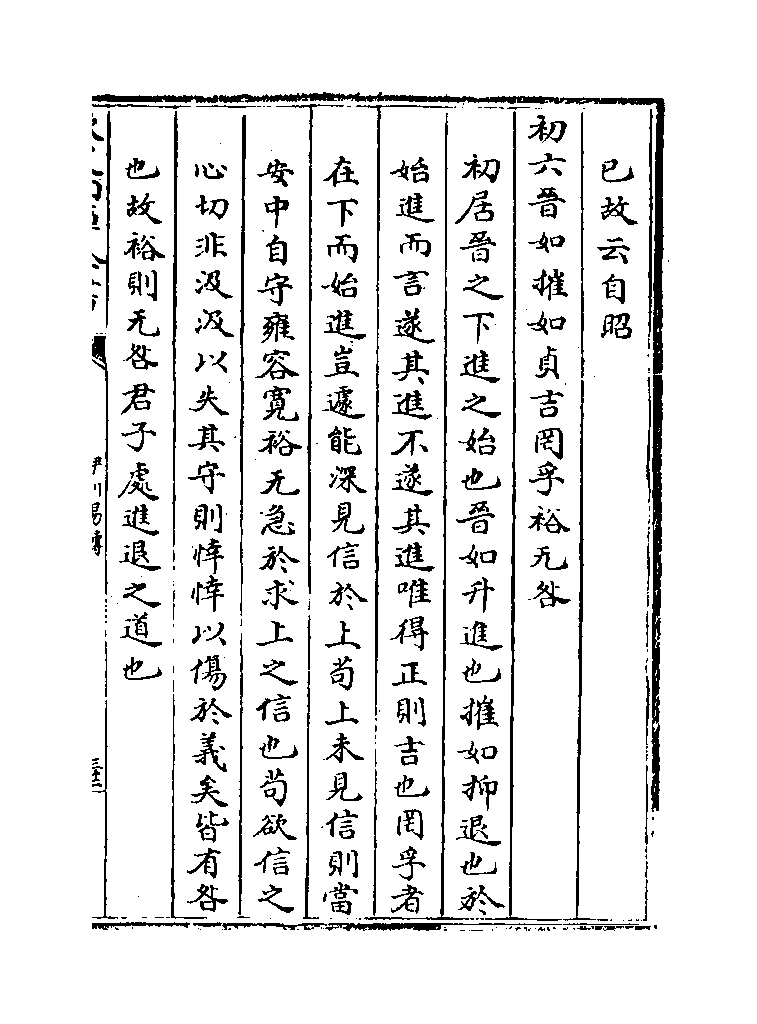 已故云自昭
初六晉如摧如貞吉罔孚裕无咎
初居晉之下進之始也晉如升進也摧如抑退也於
始進而言遂其進不遂其進唯得正則吉也罔孚者
在下而始進豈遽能深見信於上苟上未見信則當
安中自守雍容寛裕无急於求上之信也苟欲信之
心切非汲汲以失其守則悻悻以傷於義矣皆有咎
也故裕則无咎君子處進退之道也
伊川易傳
三十二